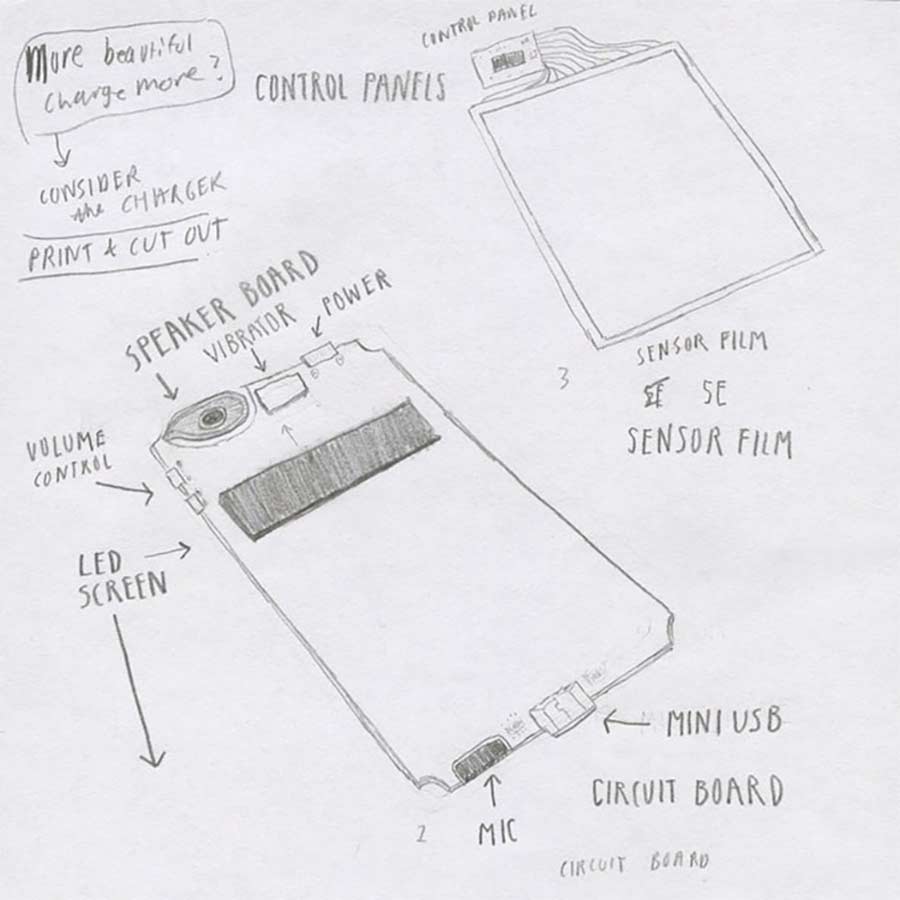 More beautiful
charge more?
CONTROL PANEL
CONTROL PANELS
CONSIDER
the CHARGER
PRINT & CUT OUT
SPEAKER BOARD
VIBRATOR
POWER
SENSOR FILM
3
SE
SENSOR FILM
VOLUME
CONTROL
LED
SCREEN
MINI USB
CIRCUIT BOARD
2
MIC
CIRCUIT BOARD